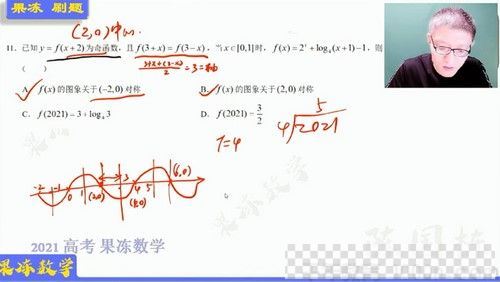 果冻 刷题
(2,0)中心
11. 已知 y = f(x+2)为奇函数，且 f(3+x) = f(3−x)，当 x∈[0,1]时，f(x) = 2ˣ + log₄(x+1)−1，则
( )
3+x+(3-x)/2 = 3 = 轴
A. f(x) 的图象关于(−2,0)对称
B. f(x) 的图象关于(2,0) 对称
C. f(2021) = 3 + log₄ 3
D. f(2021) = 3/2
T=4
5
4 2021
-2 -1 0 1 (2,0) 3 4 5 (6,0)
(4,0)
2021 高考 果冻数学
果冻数学